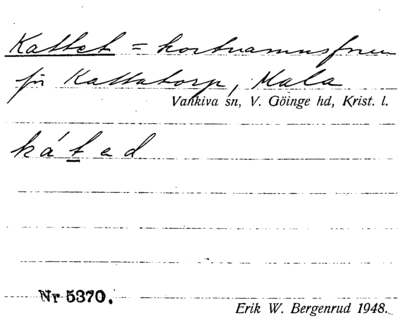 Kattet = kortnamnsform
för Kattatorp, Mala
Vankiva sn, V. Göinge hd, Krist. l.
kátad
Nr 5370.
Erik W. Bergenrud 1948.